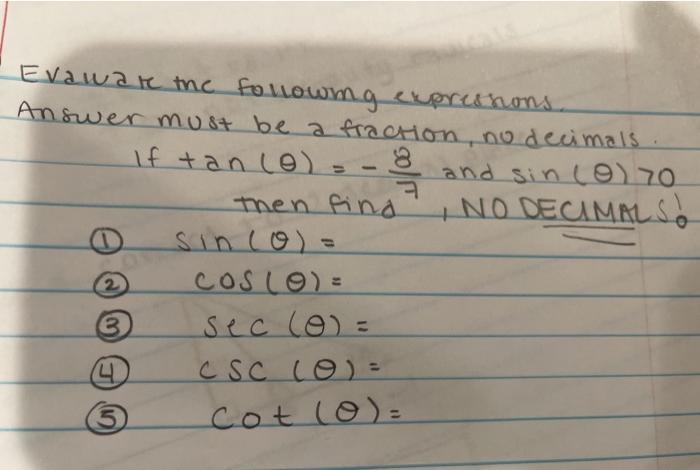 Evaluate the following expressions.
Answer must be a fraction, no decimals.
If tan(θ) = -8/7 and sin(θ) >0
then find , NO DECIMALS!
① sin(θ) =
② cos(θ) =
③ sec(θ) =
④ csc(θ) =
⑤ cot(θ) =